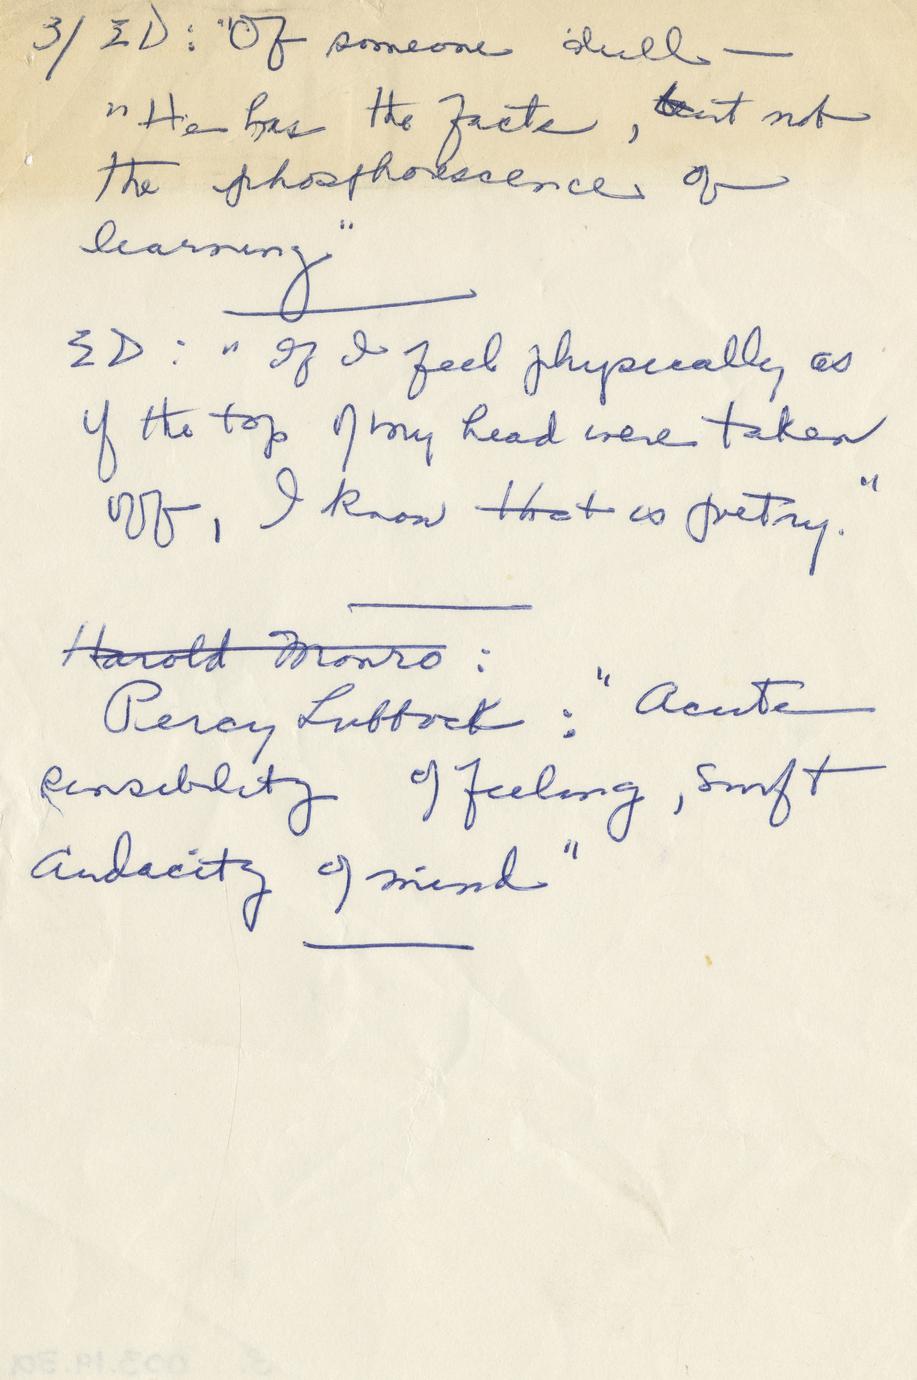 3/ ED: "Of someone dull —
"He has the facts, but not
the phosphorescence of
learning"
ED: "If I feel physically as
if the top of my head were taken
off, I know that is poetry."
Harold Monro:
Percy Lubbock: "Acute
sensibility of feeling, swift
audacity of mind"